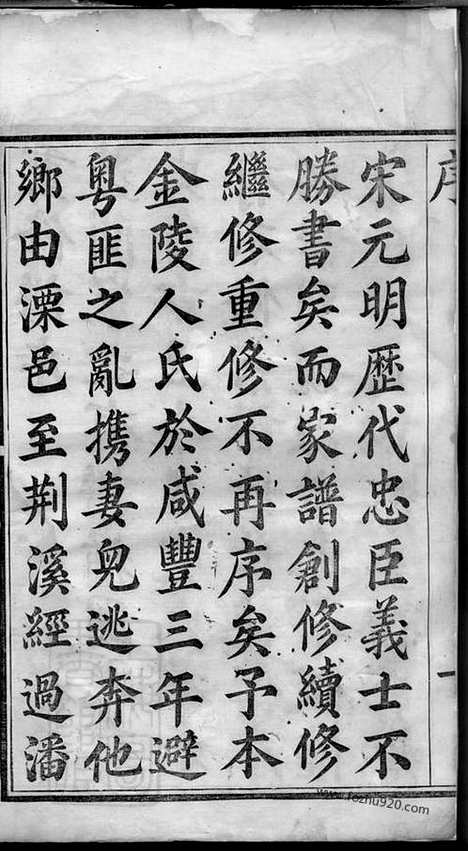 序
一
宋元明歷代忠臣義士不
勝書矣而家譜創修續修
繼修重修不再序矣予本
金陵人氏於咸豐三年避
粵匪之亂携妻皃逃奔他
鄉由溧邑至荆溪經過潘
www.fozhu920.com